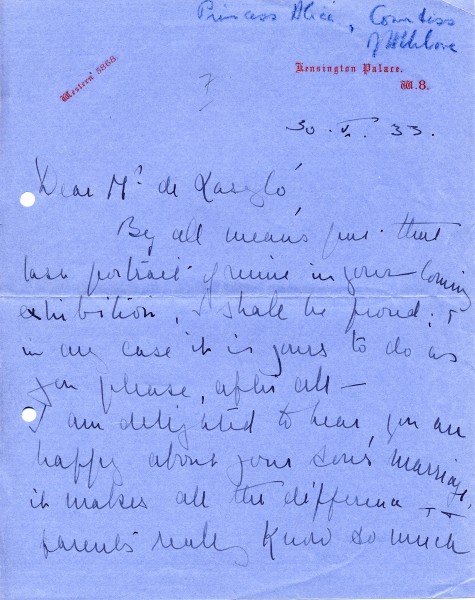 Princess Alice, Countess
of Athlone
Western 5868.
Kensington Palace.
W.8.
30. V. 33.
Dear Mr de Laszló,
By all means put that
last portrait of mine in your coming
exhibition, I shall be proud; &
in any case it is yours to do as
you please, after all —
I am delighted to hear, you are
happy about your son's marriage,
it makes all the difference —
parents really know so much